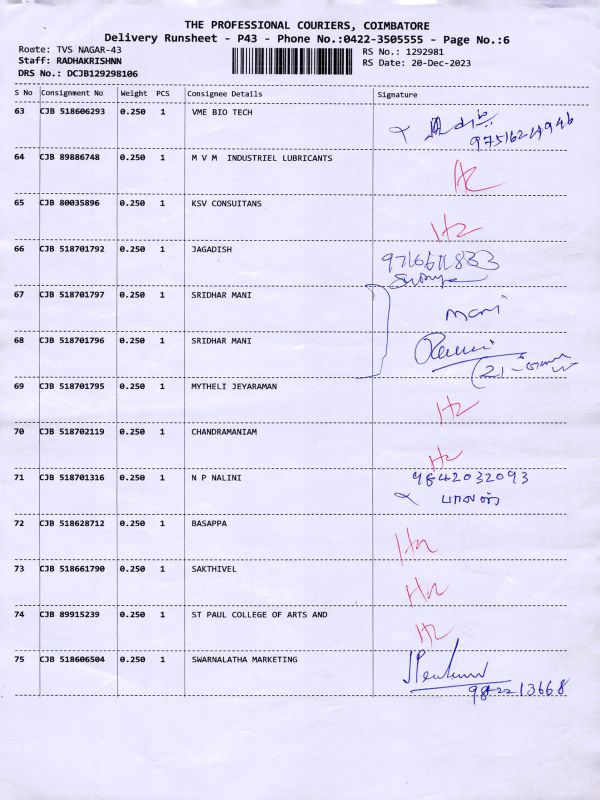 THE PROFESSIONAL COURIERS, COIMBATORE
Delivery Runsheet - P43 - Phone No.:0422-3505555 - Page No.:6
Route: TVS NAGAR-43 RS No.: 1292981
Staff: RADHAKRISHNN RS Date: 20-Dec-2023
DRS No.: DCJB129298106
S No Consignment No Weight PCS Consignee Details Signature
63 CJB 518606293 0.250 1 VME BIO TECH
64 CJB 89886748 0.250 1 M V M INDUSTRIEL LUBRICANTS
65 CJB 80035896 0.250 1 KSV CONSUITANS
66 CJB 518701792 0.250 1 JAGADISH
67 CJB 518701797 0.250 1 SRIDHAR MANI mani
68 CJB 518701796 0.250 1 SRIDHAR MANI
69 CJB 518701795 0.250 1 MYTHELI JEYARAMAN
70 CJB 518702119 0.250 1 CHANDRAMANIAM
71 CJB 518701316 0.250 1 N P NALINI 9842032093
72 CJB 518628712 0.250 1 BASAPPA
73 CJB 518661790 0.250 1 SAKTHIVEL
74 CJB 89915239 0.250 1 ST PAUL COLLEGE OF ARTS AND
75 CJB 518606504 0.250 1 SWARNALATHA MARKETING